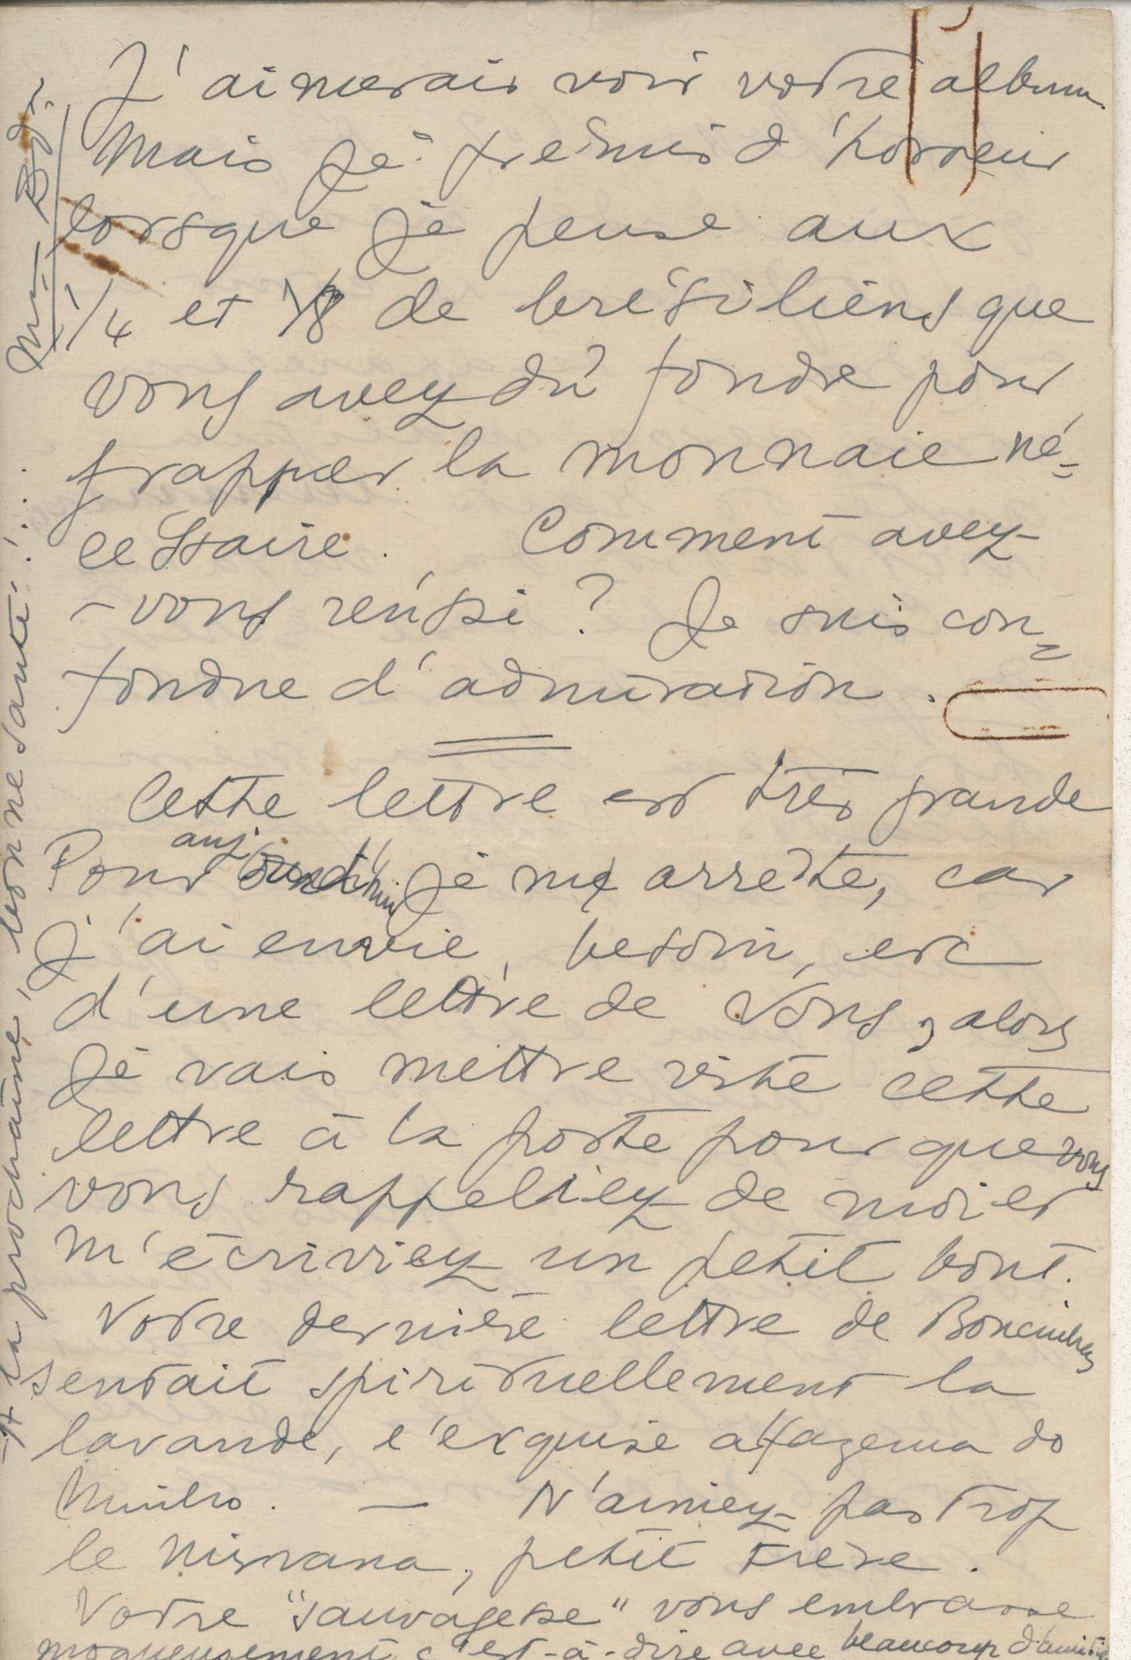 J'aimerais voir votre album.
Mais je frémis d'horreur
lorsque je pense aux
1/4 et 1/8 de brésiliens que
vous avez dû fondre pour
frapper la monnaie né-
cessaire. Comment avez-
-vous réussi? Je suis con-
fondue d'admiration.
Cette lettre est très grande
Pour aujourd'hui je me arrête, car
j'ai envie, besoin, etc
d'une lettre de vous, alors
je vais mettre vite cette
lettre à la poste pour que vous
vous rappeliez de moi et
m'écriviez un petit bout.
Votre dernière lettre de
sentait spirituellement la
lavande, l'exquise alfazema do
Minho. — N'aimez pas trop
le nirvana, petit frère.
Votre "sauvagesse" vous embrasse
moqueusement c'est-à-dire avec beaucoup d'amitié
A la prochaine, bonne santé!...